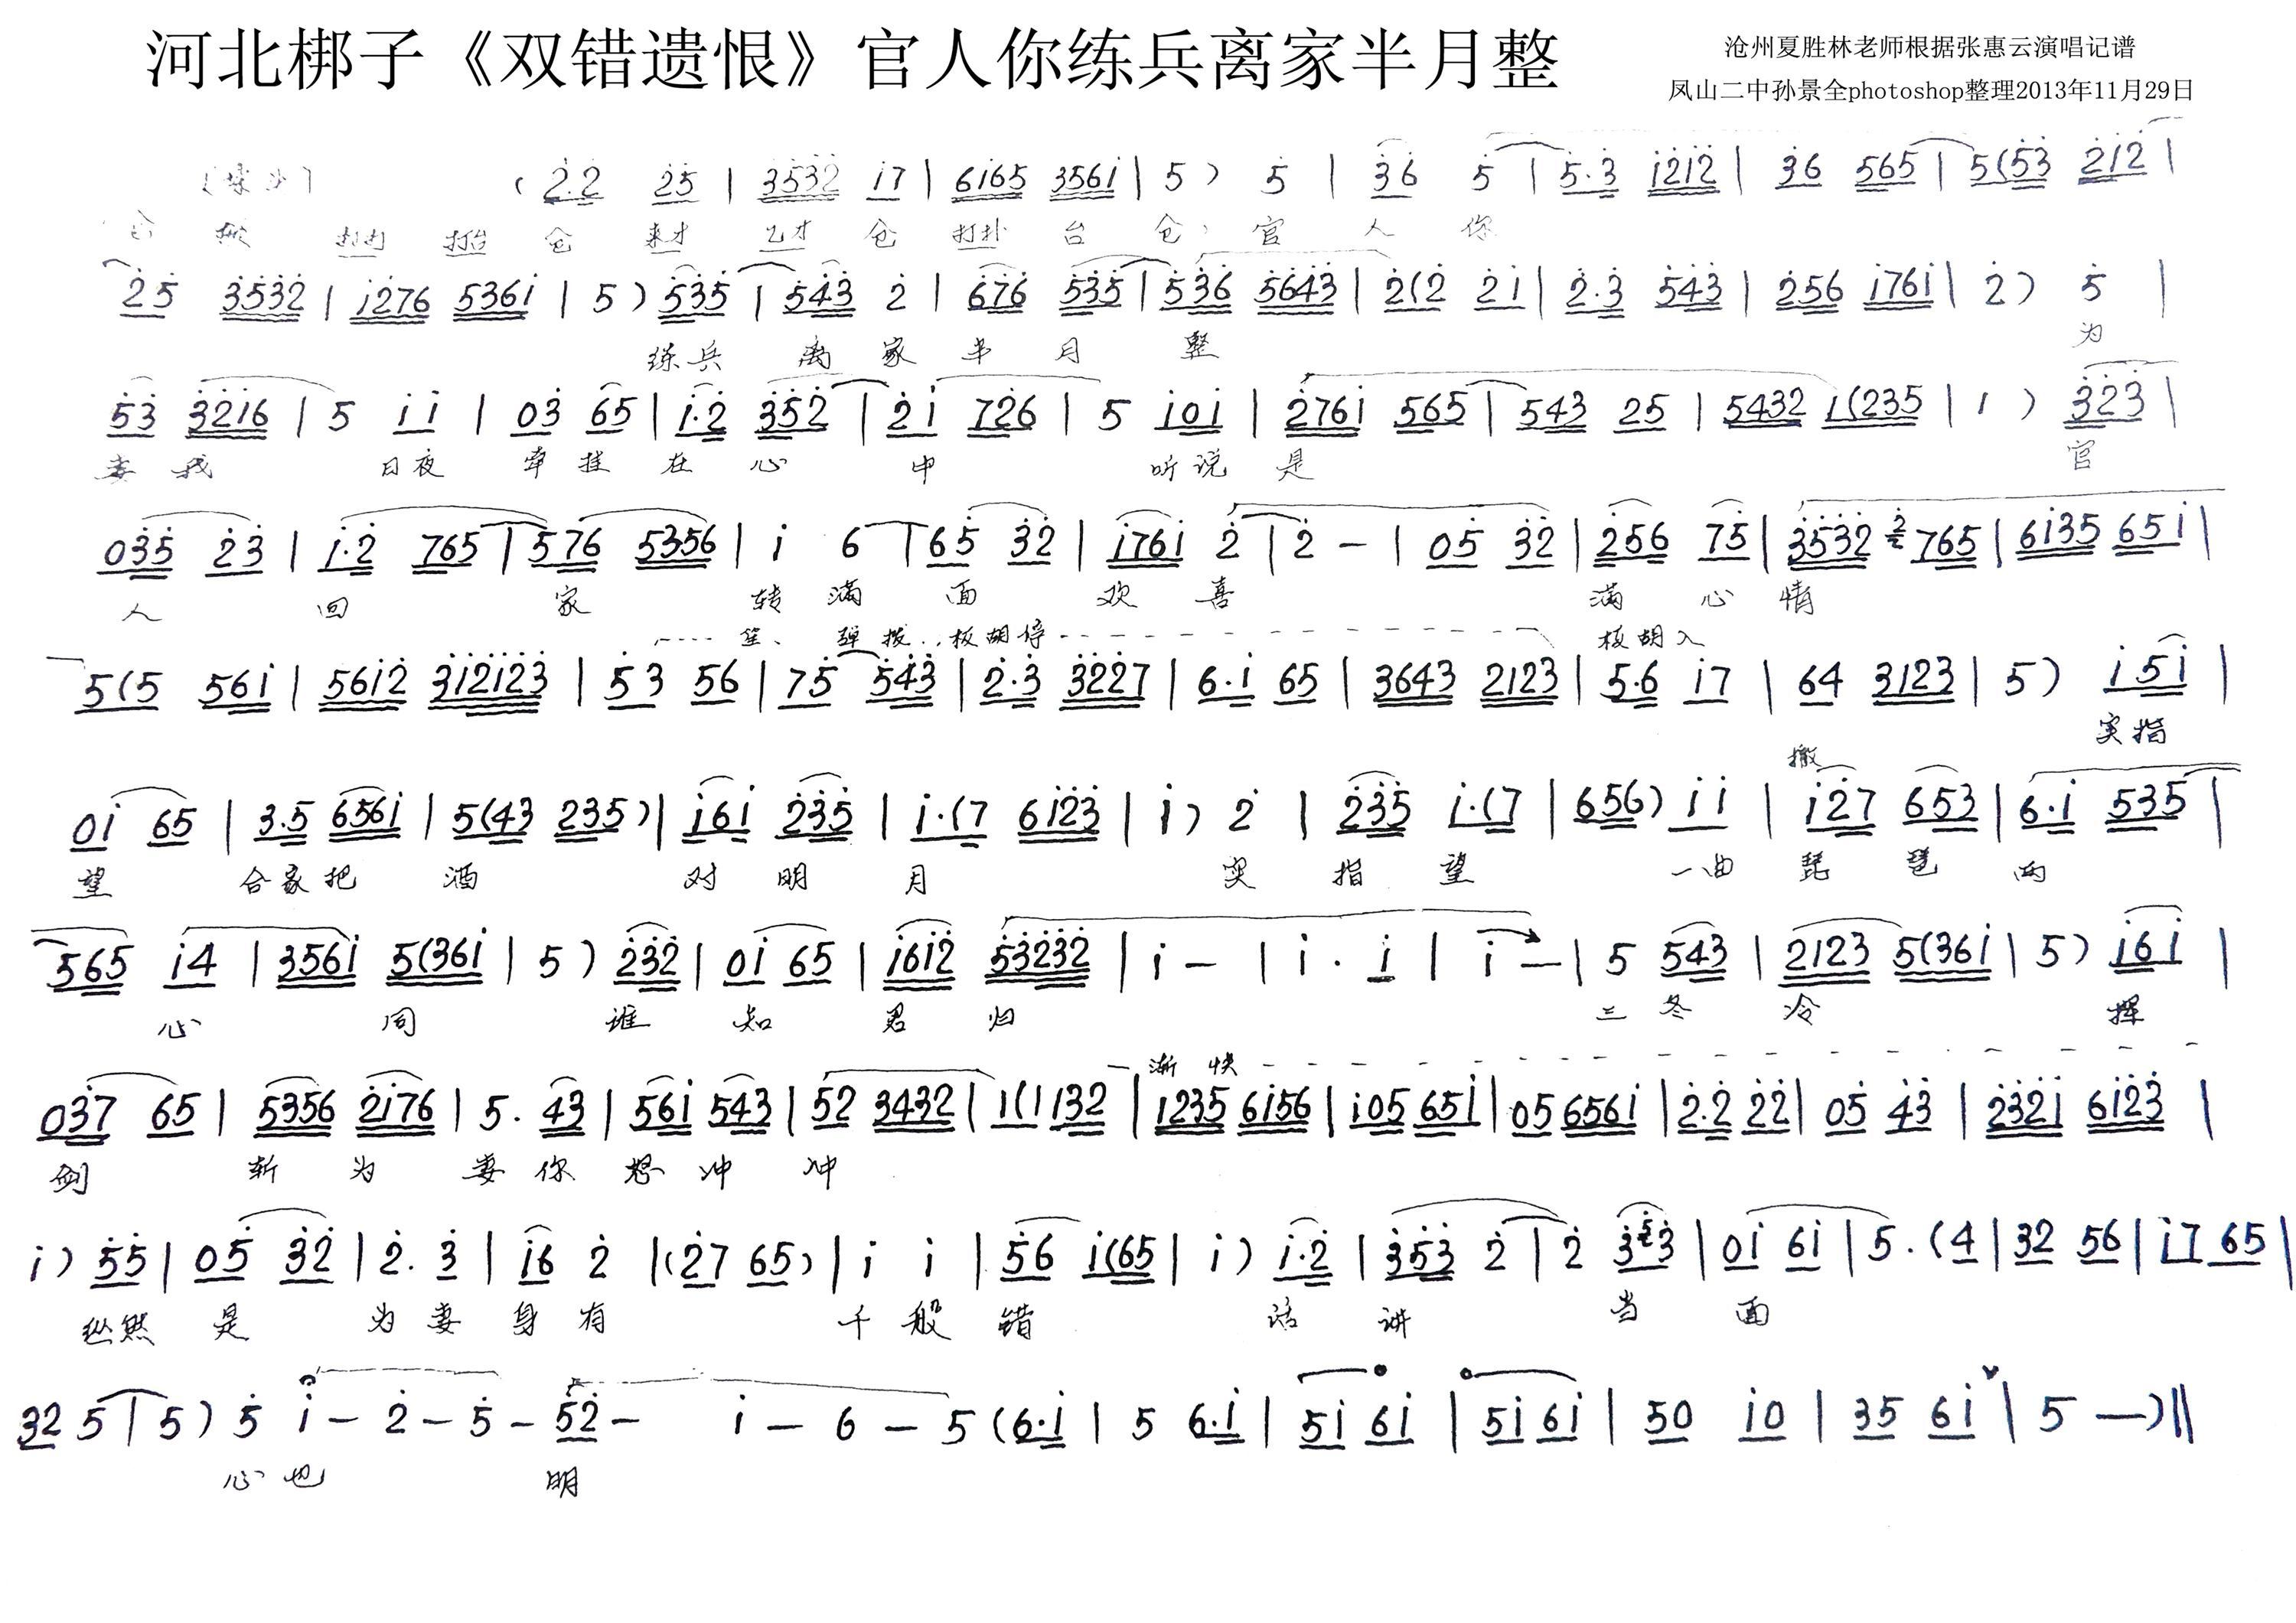 河北梆子《双错遗恨》官人你练兵离家半月整
沧州夏胜林老师根据张惠云演唱记谱
凤山二中孙景全photoshop整理2013年11月29日
(2̇.2̇ 2̇5̇ | 3̇5̇3̇2̇ i7 | 6i65 356i | 5) 5̇ | 3̇6 5̇ | 5̇.3̇ i2̇i2̇ | 3̇6 565 | 5(5̇3̇ 2̇i2̇ |
仓 打打 打台 仓 来才 乙才 仓 打扑 台 仓 官 人 你
2̇5̇ 3̇5̇3̇2̇ | i276 536i | 5) 5̇3̇5̇ | 5̇4̇3̇ 2̇ | 67̇6 5̇3̇5̇ | 5̇3̇6̇ 5̇6̇4̇3̇ | 2̇(2̇ 2̇i | 2̇.3̇ 5̇4̇3̇ | 2̇56 i76i | 2̇) 5̇ |
练兵 离 家 半 月 整 为
5̇3̇ 3̇2̇i6 | 5 i i | 03̇ 65 | i.2̇ 3̇5̇2̇ | 2̇i 72̇6 | 5 i0i | 2̇76i 565 | 543 25 | 5432 1(235 | 1) 3̇2̇3̇ |
妻 我 日夜 牵 挂 在 心 中 听说 是 官
03̇5̇ 2̇3̇ | i.2̇ 765 | 576 5356 | i 6 | 65̇ 3̇2̇ | i76i 2̇ | 2̇ - | 05̇ 3̇2̇ | 2̇56 75̇ | 3̇5̇3̇2̇ 765 | 6i35 65i |
人 回 家 转 满 面 欢 喜 满 心 情
笙、弹拨..板胡停 板胡入
5(5 56i | 56i2̇ 3̇i2̇i2̇3̇ | 5̇3 56 | 75̇ 5̇4̇3̇ | 2̇.3̇ 3̇2̇2̇7 | 6.i 65 | 3643 2123 | 5.6 i7 | 64 3123 | 5) i5̇i |
实指
撤
0i 65 | 3.5 656i | 5(43 235) | i6i 2̇3̇5̇ | i.(7 6i2̇3̇ | i) 2̇ | 2̇3̇5̇ i.(7 | 656) i i | i2̇7 653 | 6.i 535 |
望 合家把 酒 对 明 月 实 指 望 一曲 琵 琶 两
565 i4 | 356i 5(36i | 5) 2̇3̇2̇ | 0i 65 | i6i2̇ 5̇3̇2̇3̇2̇ | i - | i . i | i - | 5 543 | 2123 5(36i | 5) i6i |
心 同 谁 知 君 归 三 冬 冷 挥
渐 快
03̇7 65 | 5356 2̇i76 | 5. 43 | 56i 543 | 52 3432 | 1(1 132 | 1235 6i56 | i05 65i | 05 656i | 2̇.2̇ 2̇2̇ | 05̇ 4̇3̇ | 2̇3̇2̇i 6i2̇3̇ |
剑 斩 为 妻 你 怒 冲 冲
i) 5̇5̇ | 05̇ 3̇2̇ | 2̇. 3̇ | i6 2̇ | (2̇7 65) | i i | 5̇6 i(65 | i) i.2̇ | 3̇5̇3̇ 2̇ | 2̇ 3̇3̇ | 0i 6i | 5. (4 | 32 56 | i7 65 |
纵然 是 为 妻 身 有 千 般 错 话 讲 当 面
32 5 | 5) 5̇ i - 2̇ - 5̇ - 5̇2̇ - i - 6 - 5 (6.i | 5 6.i | 5i 6i | 5i 6i | 50 i0 | 35 6i | 5 - )‖
心 也 明